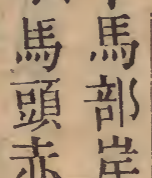 馬部岸
馬頭赤